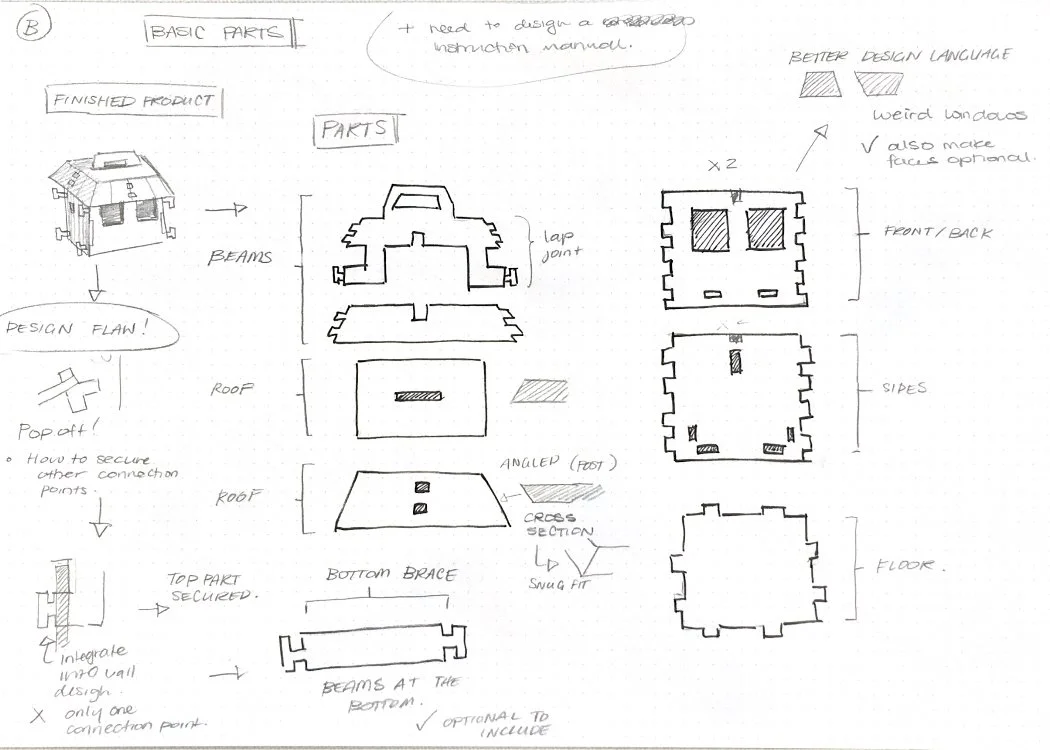 B
BASIC PARTS
+ need to design a
instruction manual.
BETTER DESIGN LANGUAGE
weird windows
✓ also make
faces optional.
FINISHED PRODUCT
PARTS
BEAMS
lap
joint
x 2
FRONT/BACK
DESIGN FLAW!
Pop off!
• How to secure
other connection
points.
ROOF
SIDES
ROOF
ANGLED (FOST)
CROSS
SECTION
SNUG FIT
TOP PART
SECURED.
BOTTOM BRACE
FLOOR.
Integrate
into wall
design.
X only one
connection point.
BEAMS AT THE
BOTTOM.
✓ OPTIONAL TO
INCLUDE